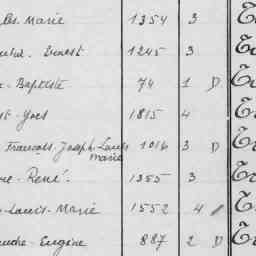 Marie 1354 3
Ernest 1245 3
Baptiste 74 1 D
Yves 1815 4
François-Joseph-Louis 1016 3 D
Marie
René. 1355 3
Louis-Marie 1552 4
Eugène 887 2 D